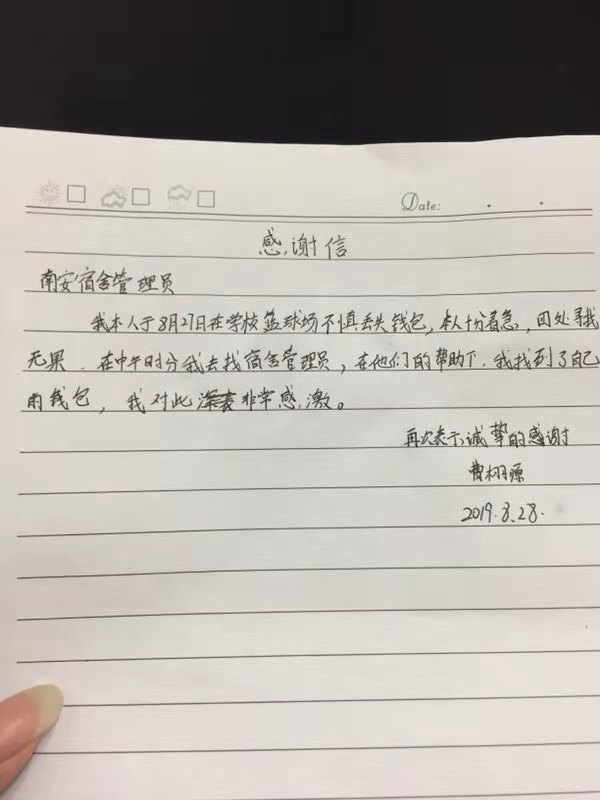 Date:
感谢信
南安宿舍管理员
我本人于8月27日在学校篮球场不慎丢失钱包,本人十分着急,四处寻找
无果,在中午时分我去找宿舍管理员,在他们的帮助下,我找到了自己
的钱包,我对此深表非常感激。
再次表示诚挚的感谢
曹栩源
2019.8.28.